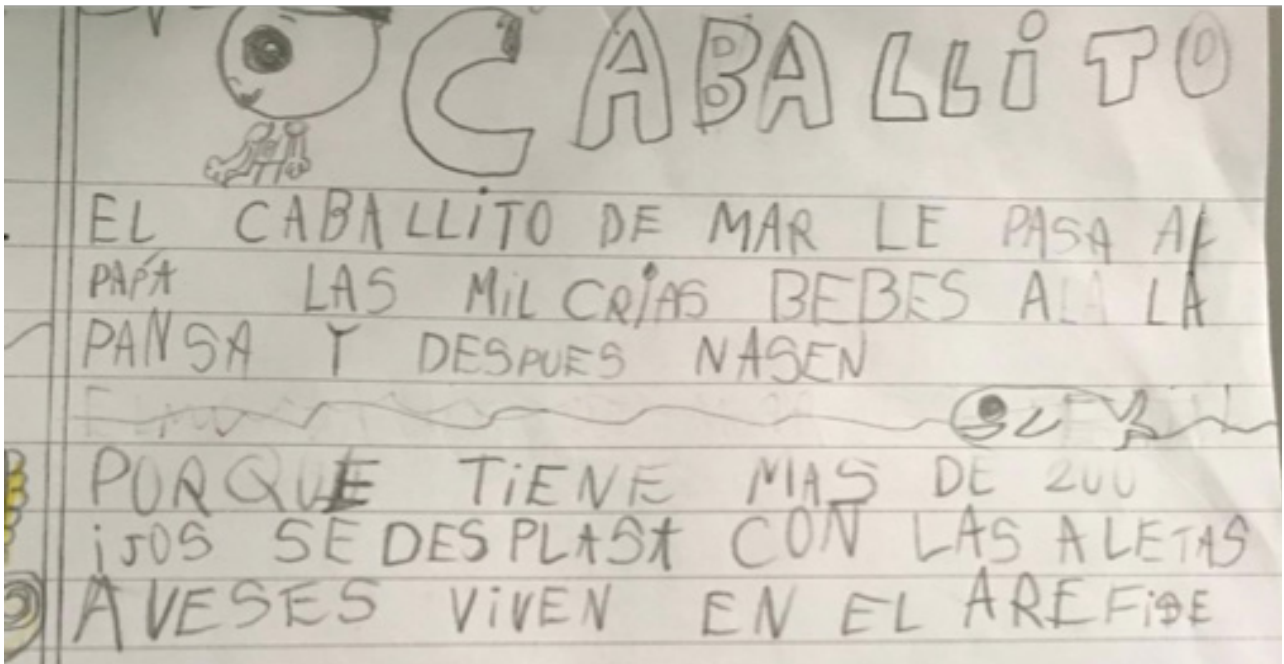 CABALLiTO
EL CABALLiTO DE MAR LE PASA AL
PAPÁ LAS MiL CRÍAS BEBES A LA
PANSA Y DESPUES NASEN
PORQUE TiENE MAS DE 200
iJOS SE DESPLASA CON LAS ALETAS
AVESES ViVEN EN EL AREFiSE